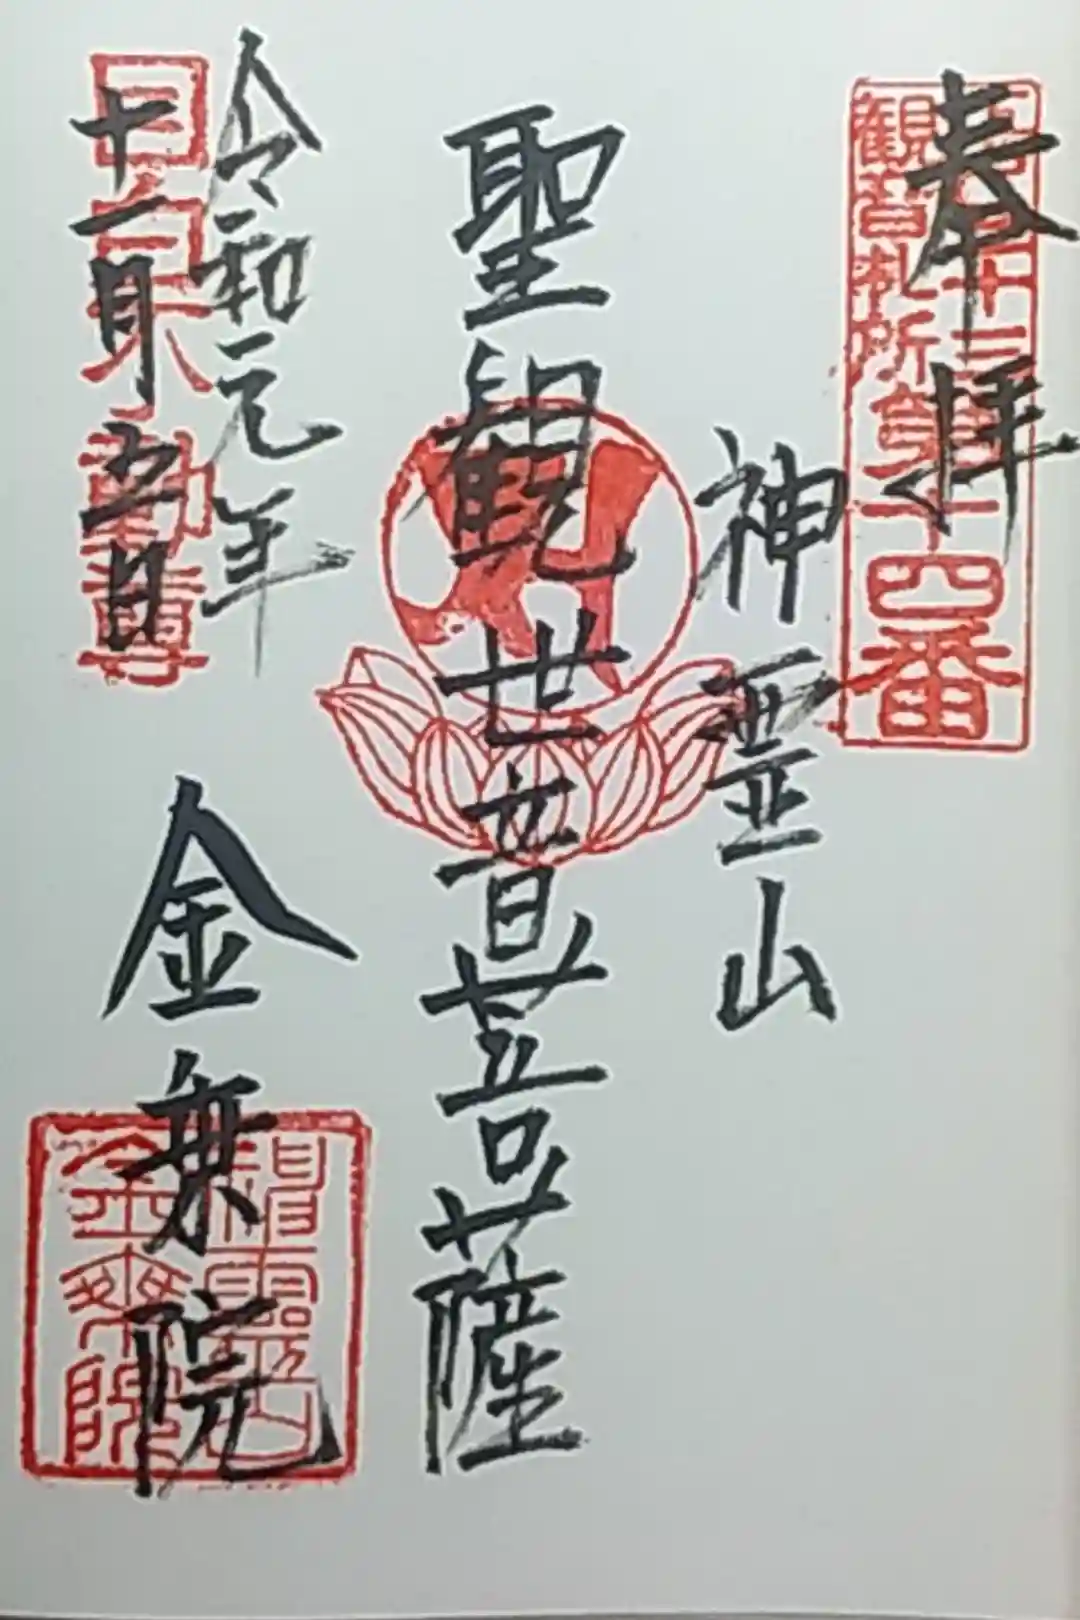 奉拝
観音札所第十四番
神霊山
聖観世音菩薩
令和元年
十一月五日
金乗院
金乗院